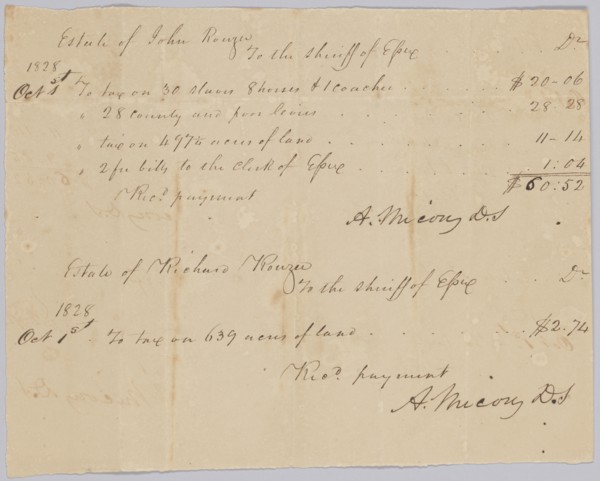 Estate of John Rouzee
To the sheriff of Essex . . . Dr
1828
Oct 1st To tax on 30 slaves 8 horses & 1 coachee . . $20-06
" 28 county and poor levies . . . 28 28
" tax on 4975 acres of land . . . 11-14
" 2 fee bills to the Clerk of Essex . . . 1:04
$60:52
Recd. payment
A. Micou D.S
Estate of Richard Rouzee
To the sheriff of Essex . . . Dr
1828
Oct 1st. To tax on 639 acres of land . . . $2.74
Recd. payment
A. Micou D.S